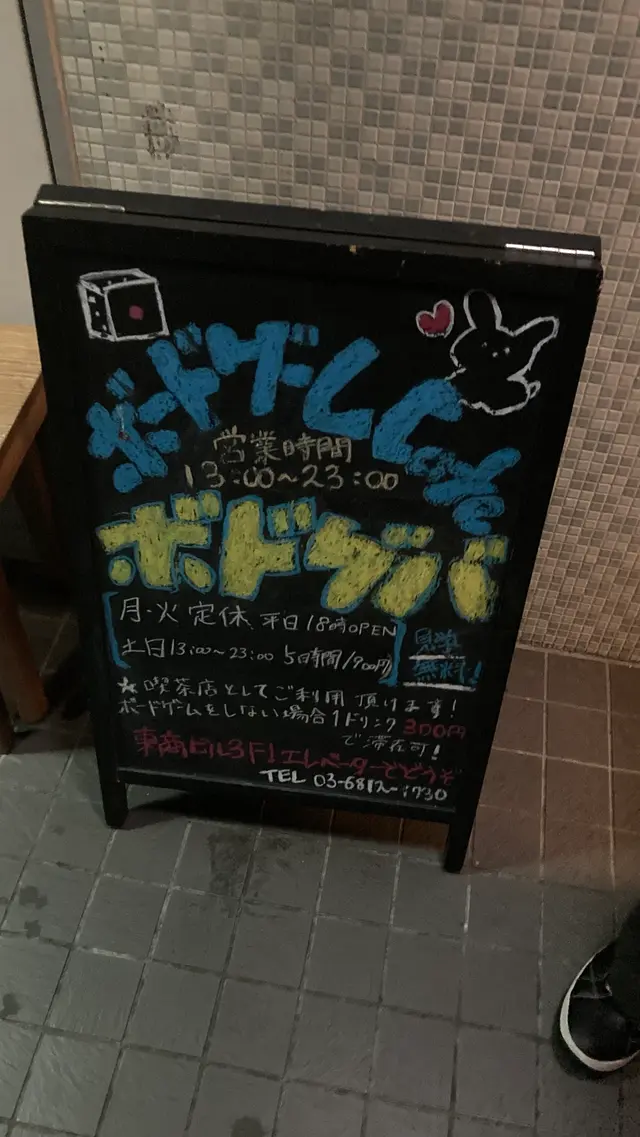 ボードゲームCafe
営業時間
13:00~23:00
ボドゲバ
月・火 定休、平日18時OPEN
土日13:00~23:00 5時間/900円
見学
無料!
★喫茶店としてご利用頂けます!
ボードゲームをしない場合1ドリンク300円
で滞在可!
東商ビル3F!エレベーターでどうぞ
TEL 03-6812-1730